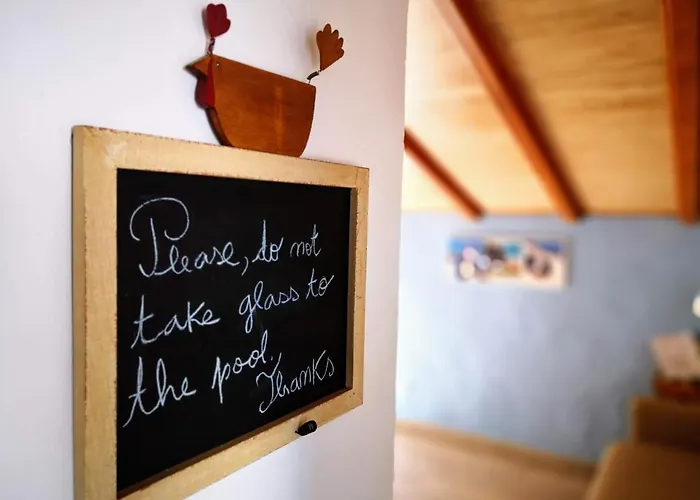 Please, do not
take glass to
the pool.
Thanks